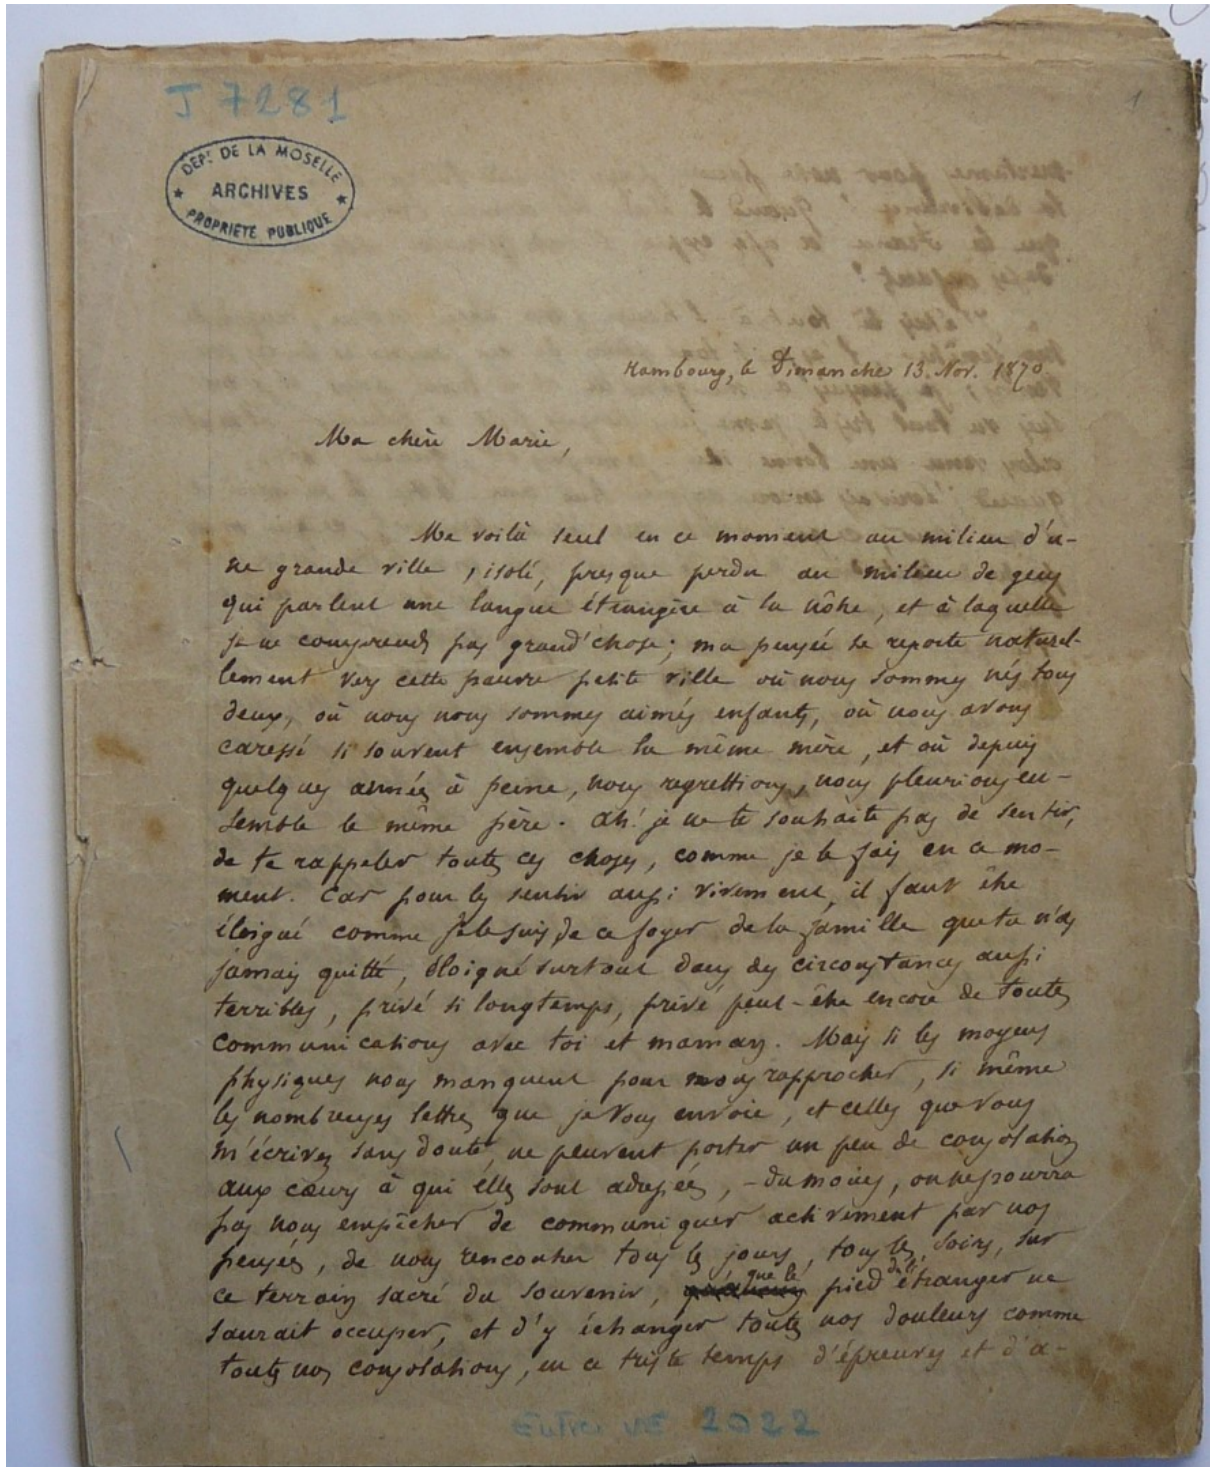 J 7281
DEPT DE LA MOSELLE
ARCHIVES
PROPRIÉTÉ PUBLIQUE
1
Hambourg, le Dimanche 13. Nov. 1870.
Ma chère Marie,
Me voilà seul en ce moment au milieu d'u-
ne grande ville, isolé, presque perdu au milieu de gens
qui parlent une langue étrangère à la nôtre, et à laquelle
je ne comprends pas grand'chose; ma pensée se reporte naturel-
lement vers cette pauvre petite ville où nous sommes nés tous
deux, où nous nous sommes aimés enfants, où nous avons
caressé si souvent ensemble la même mère, et où depuis
quelques années à peine, nous regrettions, nous pleurions en-
semble le même père. Ah! je ne te souhaite pas de sentir,
de te rappeler toutes ces choses, comme je le fais en ce mo-
ment. Car pour les sentir aussi vivement, il faut être
éloigné comme je le suis de ce foyer de la famille que tu n'as
jamais quitté, éloigné surtout dans des circonstances aussi
terribles, privé si longtemps, privé peut-être encore de toutes
communications avec toi et maman. Mais si les moyens
physiques nous manquent pour nous rapprocher, si même
les nombreuses lettres que je vous envoie, et celles que vous
m'écrivez sans doute, ne peuvent porter un peu de consolation
aux cœurs à qui elles sont adressées, - du moins, on ne pourra
pas nous empêcher de communiquer activement par nos
pensées, de nous rencontrer tous les jours, tous les soirs, sur
ce terrain sacré du souvenir, que le pied de l'étranger ne
saurait occuper, et d'y échanger toutes nos douleurs comme
toutes nos consolations, en ce triste temps d'épreuves et d'a-
Entrée 2022